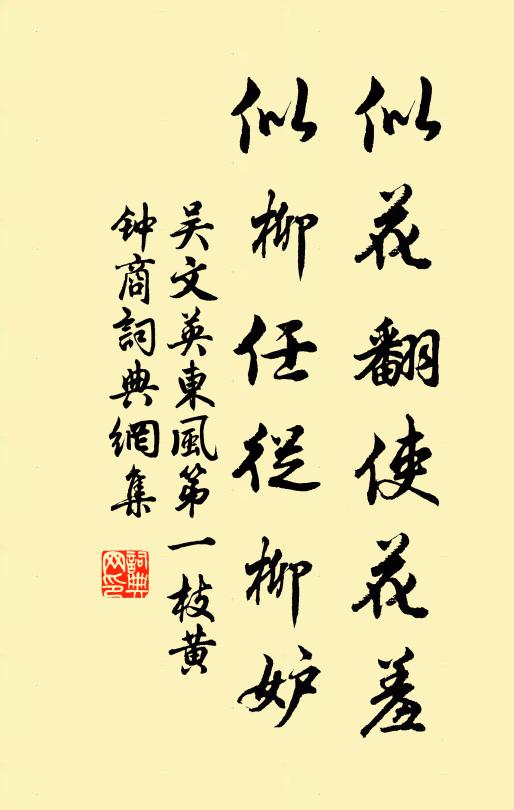 似花翻使花羞
似柳任從柳妒
吳文英東風第一枝黃
钟商詞典網集
詞典
网印